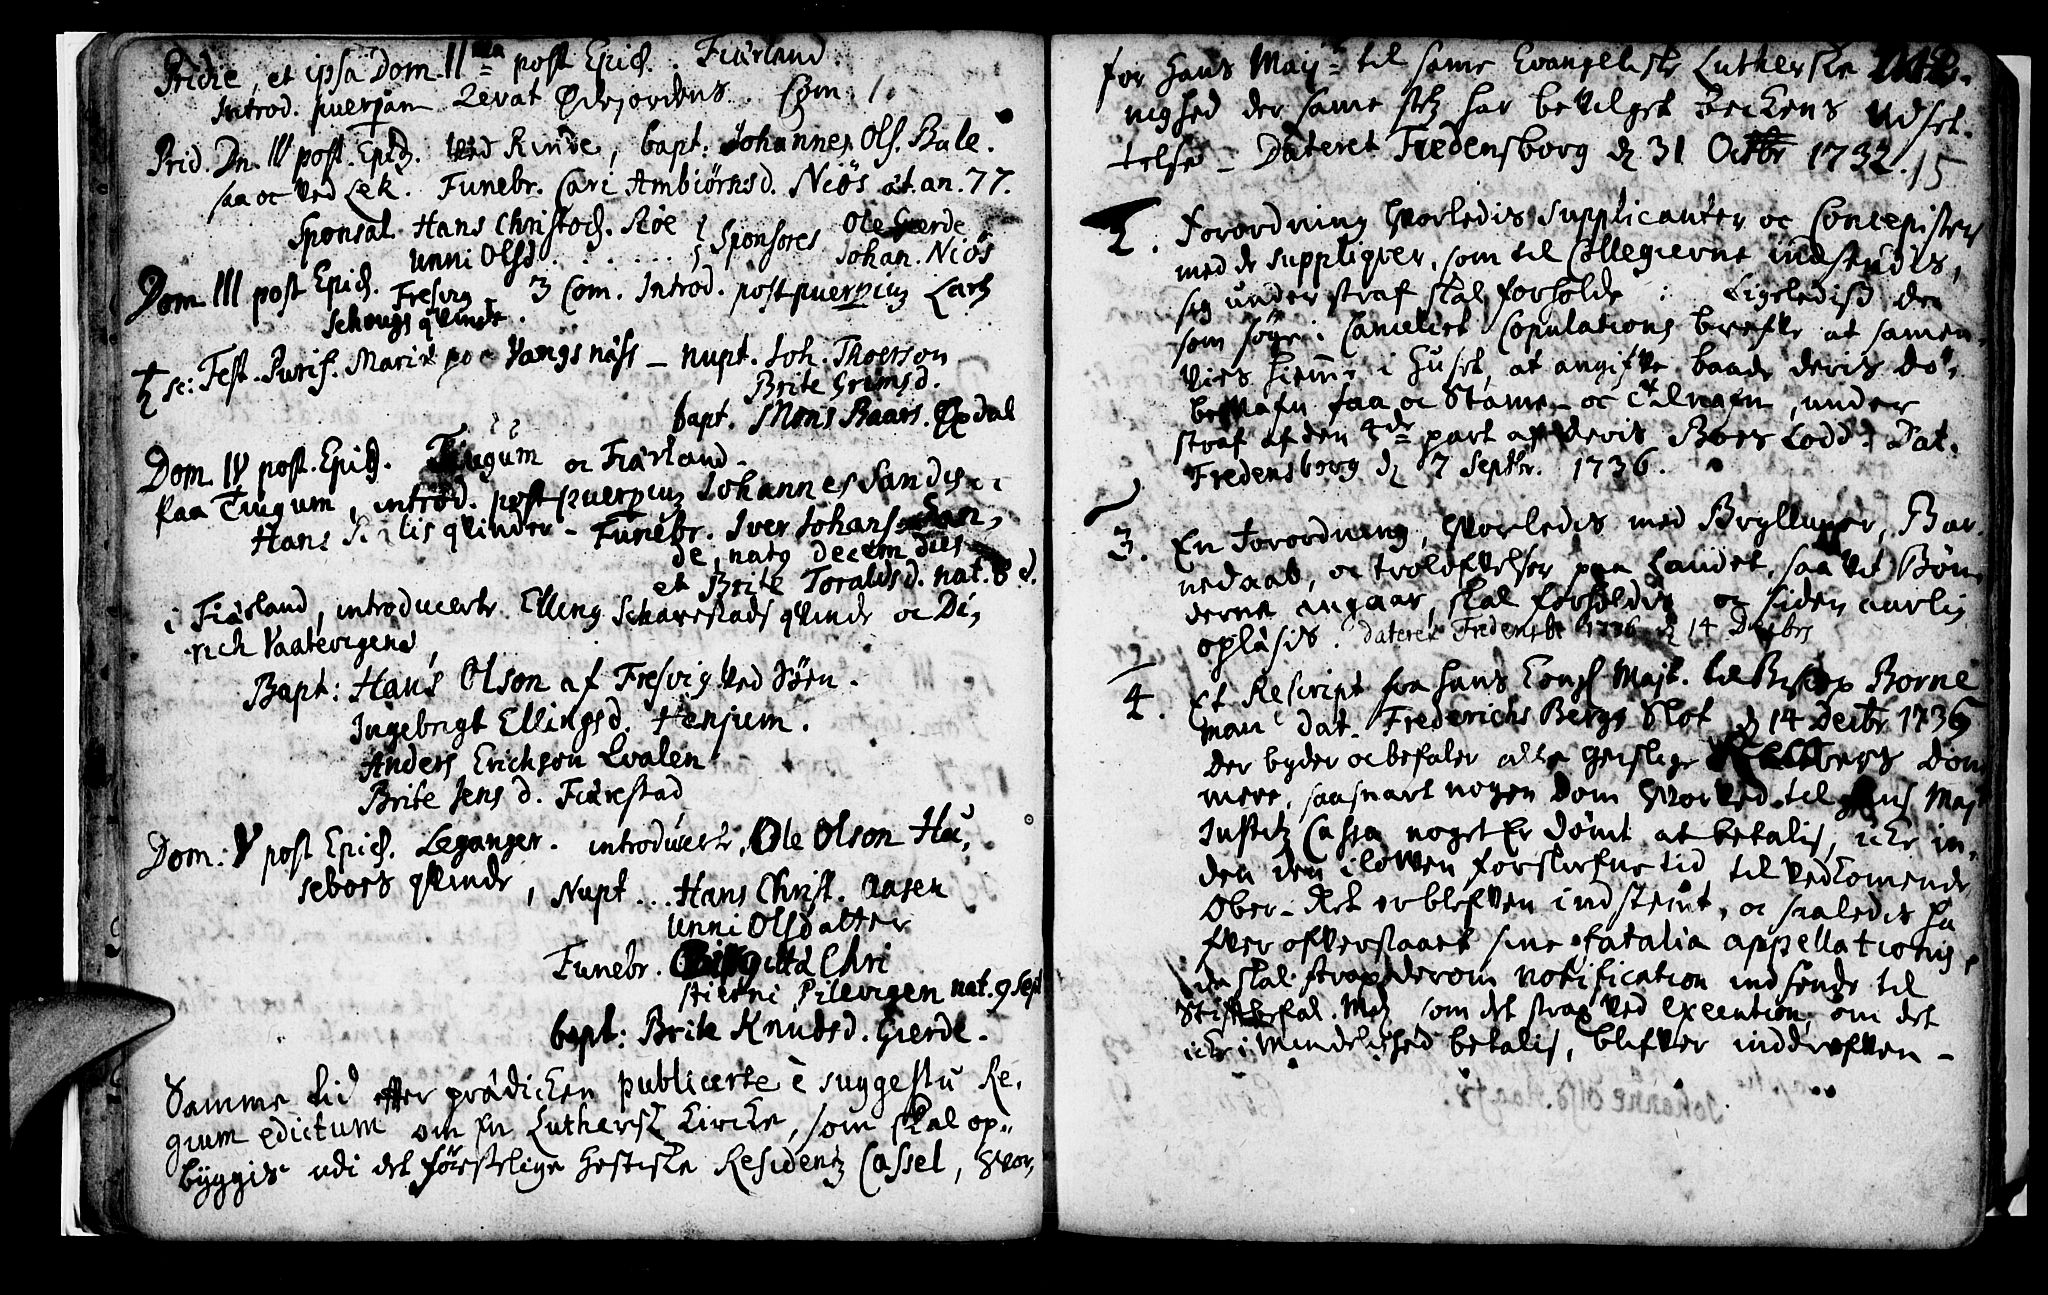 Pridie, et ipsa Dom. II da post Epiph. Fiærland.
Introd. puerpam Zerat Ødejordens. Com. 1.
Prid. Dn. III post. Epiph. ved Rinde, bapt: Johannes Ols. Bale.
saa oc ved Lek. Funebr. Cari Ambiørnsd. Niøs æt. an. 77.
Sponsal. Hans Christoph. Røe } Sponsores Ole Gierde
Unni Olsd. . . . . . . } Johan. Niøs
Dom III post Epiph. Fresvig 3 Com. Introd. post puerpiũ Lars
Schougs qvinde.
♄ sc: Fest. Purif. Mariæ paa Vangsnæss – nupt. Joh. Thoerson
Brite Grimsd.
bapt. Mons Baars. Øxdal
Dom IV post. Epiph. Tiugum oc Fiærland.
Paa Tiugum, introd. post puerpiũ Johannes Sandes oc
Hans qvinder – Funebr. Iver Johans. San,
de, nato decem dies
et Brite Toraldsd. nat. 8 d.
i Fiærland, introducerte Elling Scharestads qvinde oc Di,
rich Vaatevigens,
Bapt: Hans Olson af Fresvig ved Søen.
Ingebrigt Ellingsd. Henjum.
Anders Erichson Lvalen
Brite Jensd. Fiærestad
Dom: V post Epiph. Leganger. introducerte, Ole Olson Hu,
sebøes qvinde, Nupt... Hans Christ. Aasen
Unni Olsdatter
Funebr. Birgitta Chri
stierni Pilevigen nat. 9 sept
bapt: Brite Knudsd. Gierde.
Samme tid effter prædicken publicerte è suggestu Re,
gium edictum om en Luthersk Kircke, som skal op,,
byggis udi det førstelige Hessiske Residentz Cassel, hvor,
for Hans Maij: til same Evangeliske Lutherske
nighed der same stz har bevilget Beckens udset,
telse – Dateret Fredensborg d 31 Octbr 1732. 15
2. Forordning hvorledis supplicanter oc Concepister
med de suppliqver, som til Collegierne indsendis,
sig under straf skal forholde : Ligeledis de
som søge i Canceliet Copulations brefve at samen,
vies hieme i Huset, at angifve baade deris dø,
be Nafn saa oc Stame- oc tilnafn, under
straf af den 4de part af deris Boes Lodd. Dat.
Fredensborg d 7 Septbr. 1736.
3. En Forordning, hvorledis med Brylluper, Bar,
nedaab, oc trolofvelser paa Landet, saavit Bøn,
derne angaar, skal forholdis oc siden aarlig
oplæsis. Dateret Fredensb: 1736 d 14 Decbrs
4. Et Rescript fra Hans Kongl Majt. til Biskop Borne
man dat. Frederichs Bergs Slot d 14 Decbr 1736
Der byder oc befaler alle geistlige dom
mere, saasnart nogen Dom hvorved til Hans Majt
Justitz Cassa noget Er dømt at betalis, icke in,
den den i lowen forskrefne tid til vedkomende
Ober-Ret er blefven indstemt, oc saaledis ha
fver ofverstaaet sine fatalia appellationis,
de skal strax derom notification indsende til
Stiftbefal. Md som det strax ved execution, om det
icke i mindelighed betalis, blifver inddrefven –